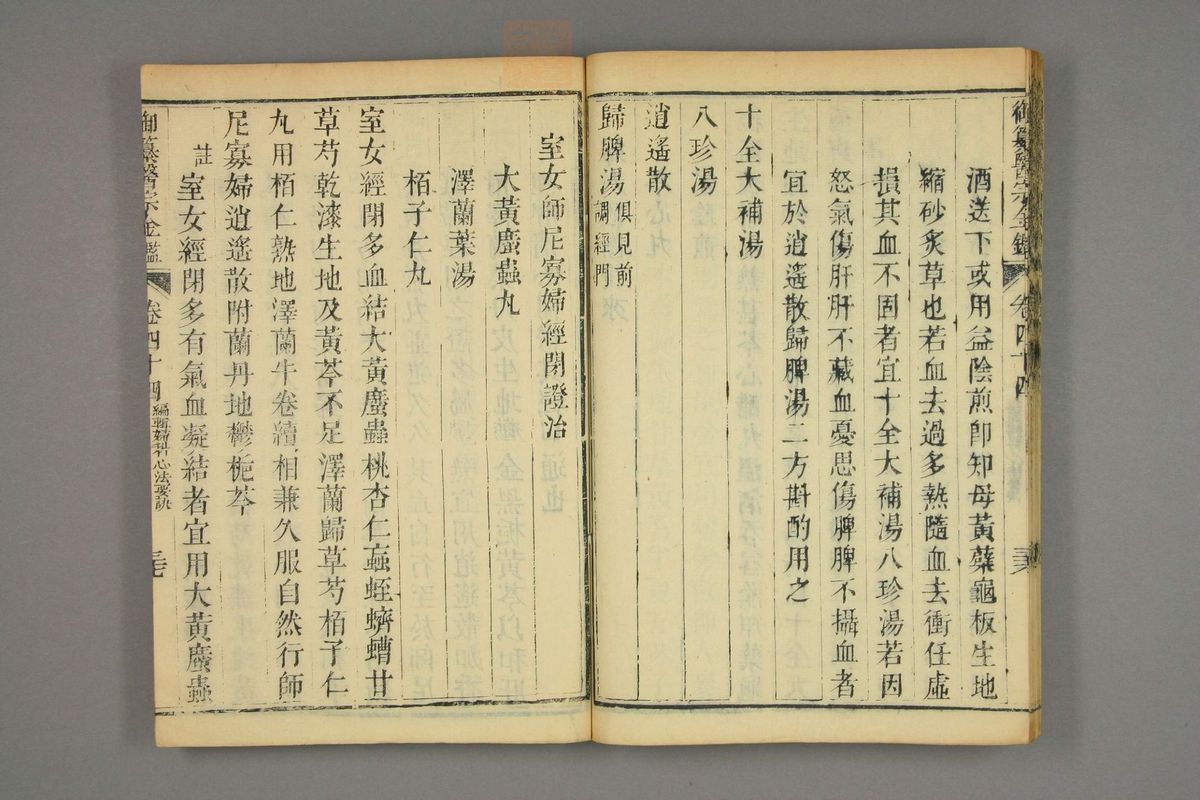 御纂醫宗金鑑 卷四十四
酒送下或用益陰煎卽知母黃蘗龜板生地
縮砂炙草也若血去過多熱隨血去衝任虛
損其血不固者宜十全大補湯八珍湯若因
怒氣傷肝肝不藏血憂思傷脾脾不攝血者
宜於逍遙散歸脾湯二方斟酌用之
十全大補湯
八珍湯
逍遙散
歸脾湯 俱見前調經門
室女師尼寡婦經閉證治
大黃䗪蟲丸
澤蘭葉湯
栢子仁丸
室女經閉多血結大黃䗪蟲桃杏仁䖟蛭蠐螬甘
草芍乾漆生地及黃芩不足澤蘭歸草芍栢子仁
丸用栢仁熟地澤蘭牛卷續相兼久服自然行師
尼寡婦逍遙散附蘭丹地鬱梔芩
註 室女經閉多有氣血凝結者宜用大黃䗪蟲
御纂醫宗金鑑 卷四十四 編輯婦科心法要訣 三七